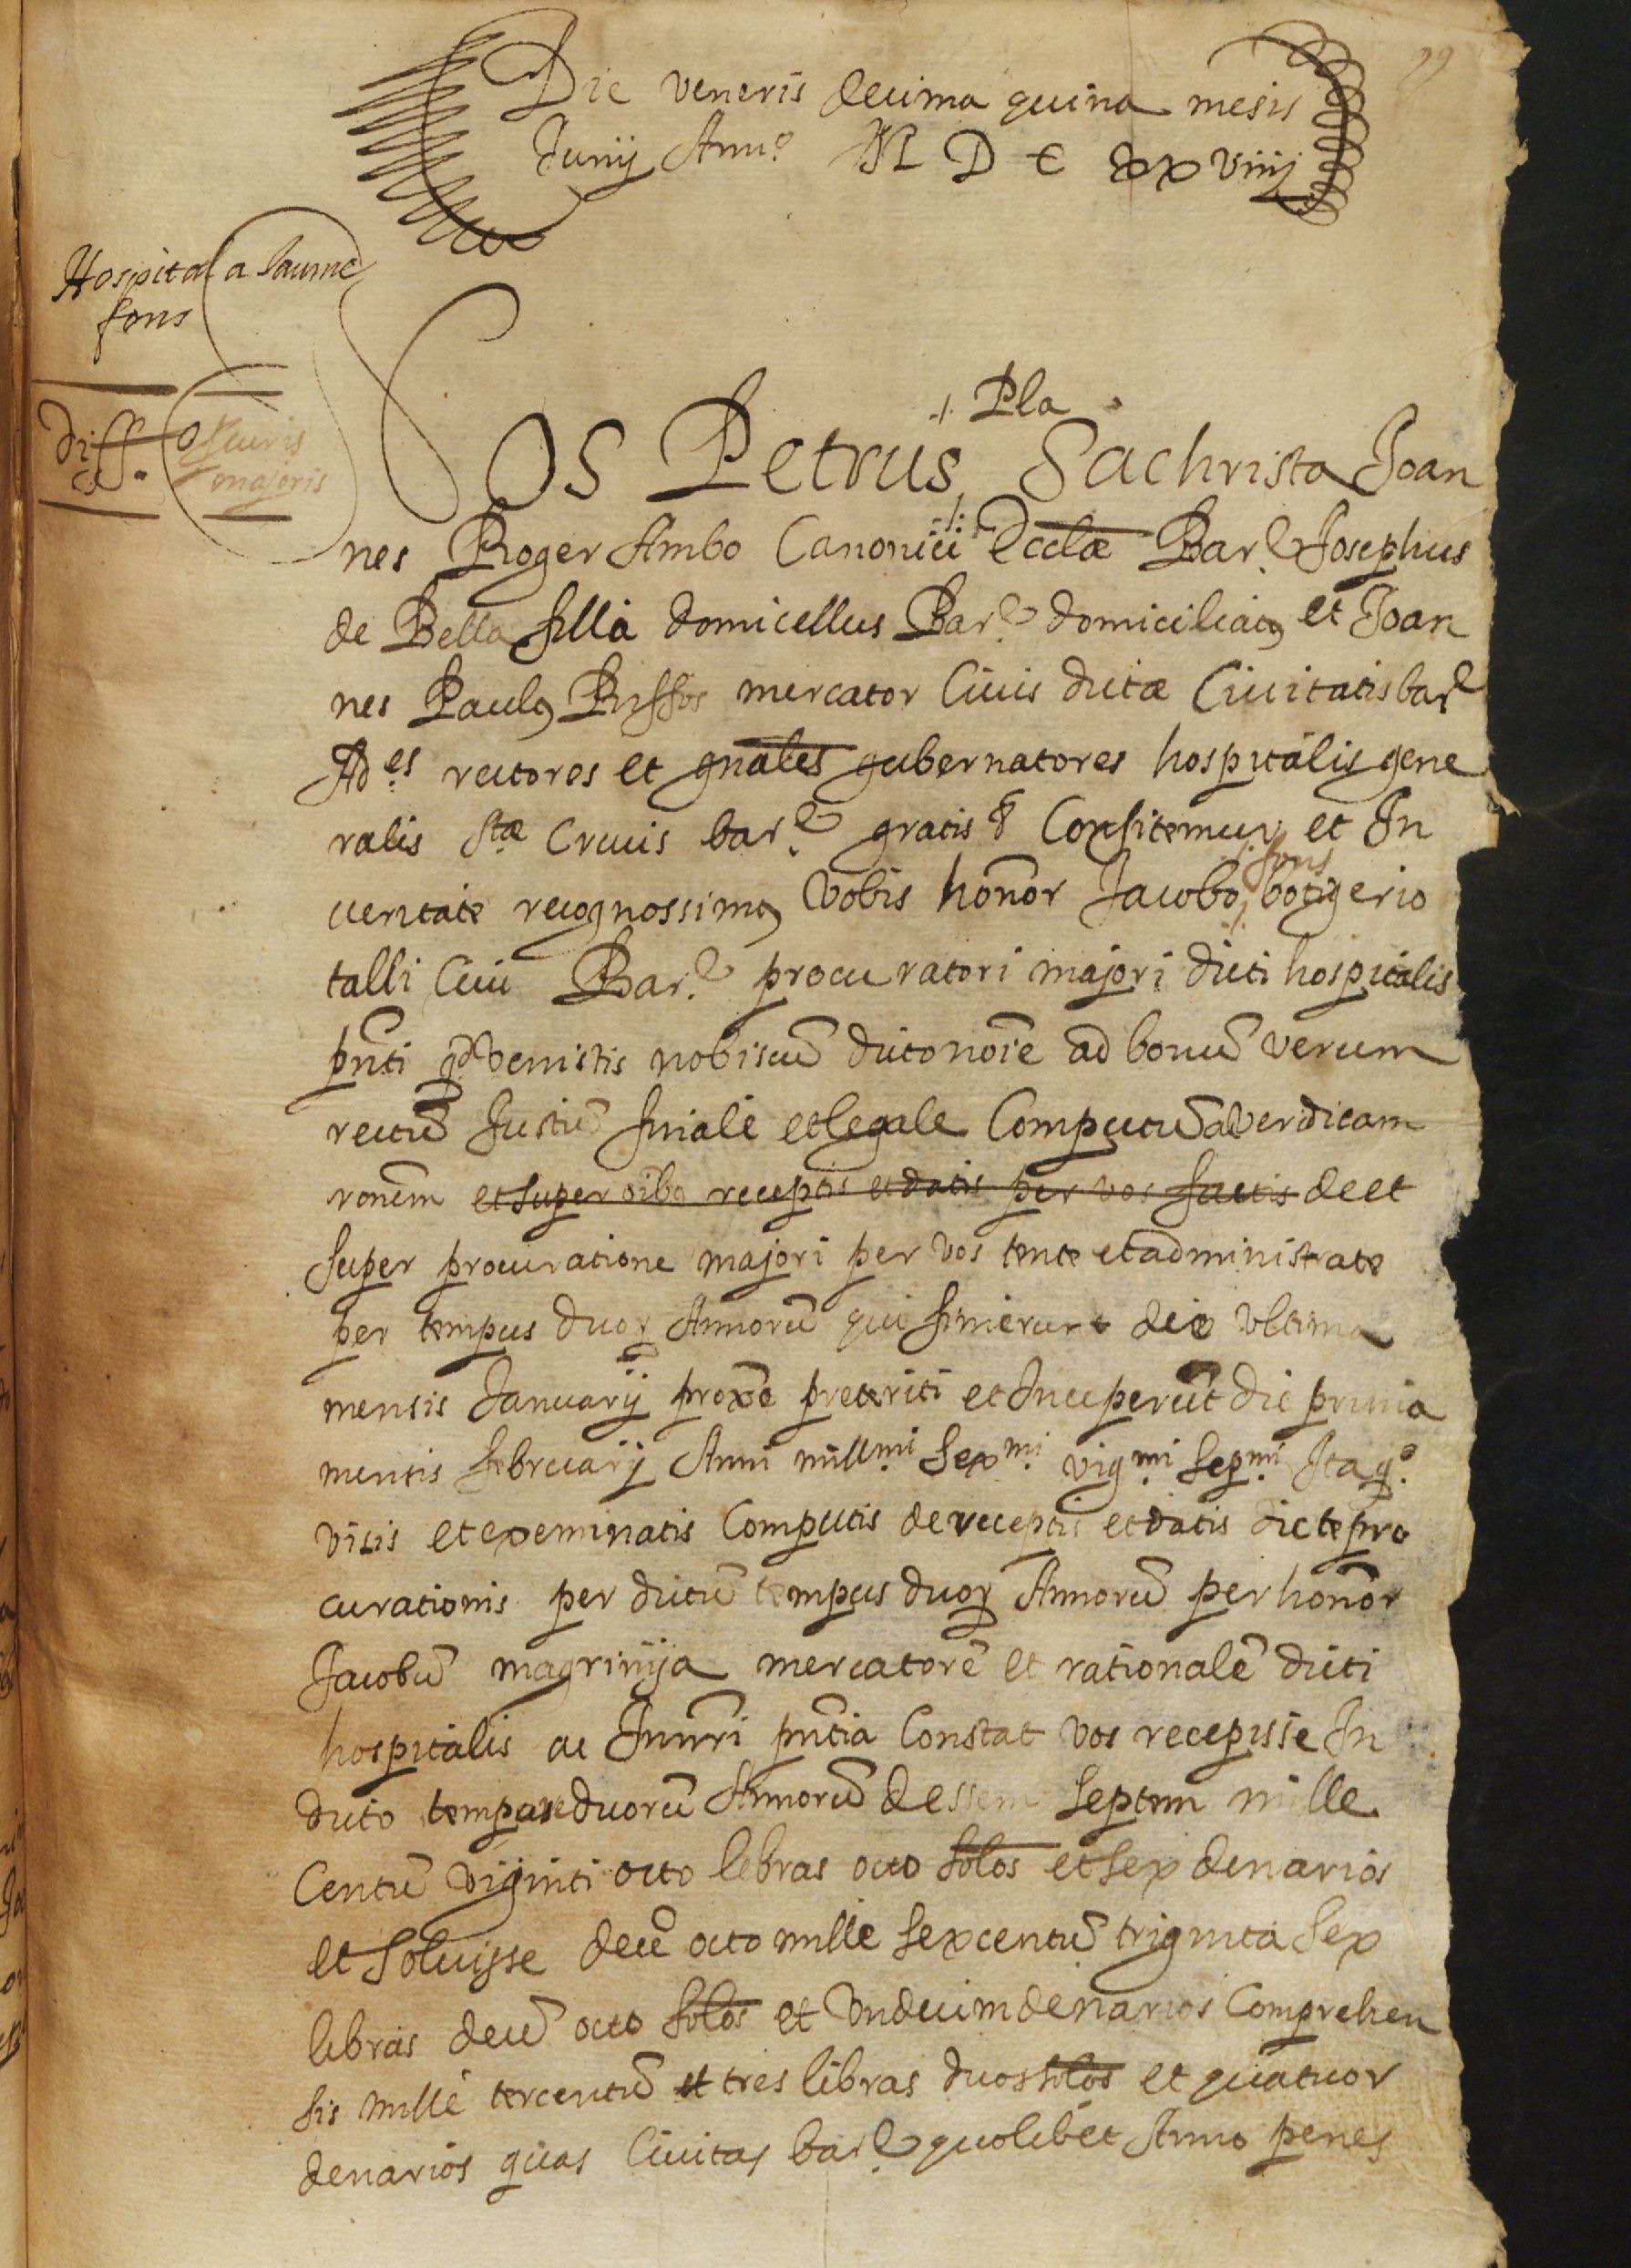 99
Die veneris decima quina mesis
Junij Ann.º M D C xxviiij
Hospital a Jaume
fons
diff.º
majoris
Pla
Nos Petrus, Sachrista Joan
nes Roger Ambo Canonici Ecclæ Bar.e Josephus
de Bella filla domicellus Bar.e domiciliatꝯ et Joan
nes Paulꝯ Riffos mercator Civis dictæ Civitatis bar.e
Ad.es rectores et gnales gubernatores hospitalis gene
ralis Stæ Crucis bar.e gratis &. Confitemur et In
fons
veritate recognossimꝯ vobis honor Jacobo, botigerio
talli Civi Bar.e procuratori majori dicti hospitalis
pnti qd venistis nobiscũ dicto noie ad bonũ verum
rectũ Justũ finale et legale Computũ ac verdicam
ronem et super oibꝯ receptis et datis per vos factis de et
super procuratione majori per vos tente et administrate
per tempus duorꝝ Annorũ qui finierunt die ultima
mensis Januarij proxe preteriti et Inceperũt die prima
mensis februarij Anni mill.mi sex.mi vig.mi sep.mi Itaq.
visis et exeminatis Computis de receptis et datis dicte pro
curationis per dictũ tempus duorꝝ Annorũ per honor
Jacobũ magrinya mercatorẽ et rationalẽ dicti
hospitalis ac In nri pntia Constat vos recepisse In
dicto tempore duorũ Annorũ dessem septem mille
Centũ viginti octo libras octo solos et sex denarios
et soluisse decẽ octo mille sexcentũ triginta sex
libras decẽ octo solos et undecim denarios Comprehen
sis mille tercentũ et tres libras duos solos et quatuor
denarios quas Civitas bar.e quolibet Anno penes